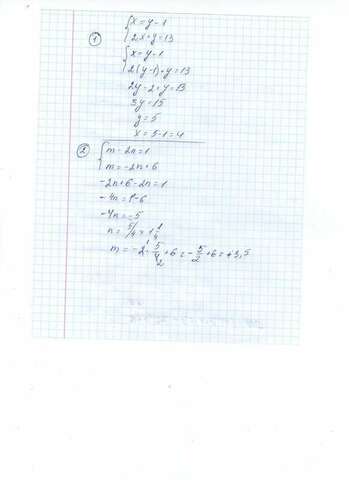 1
{ x = y - 1
{ 2x + y = 13
{ x = y - 1
{ 2(y-1) + y = 13
2y - 2 + y = 13
3y = 15
y = 5
x = 5 - 1 = 4
2
{ m - 2n = 1
{ m = -2n + 6
-2n + 6 - 2n = 1
-4n = 1 - 6
-4n = -5
n = 5/4 = 1 1/4
m = -2 · 5/4 + 6 = -5/2 + 6 = +3,5